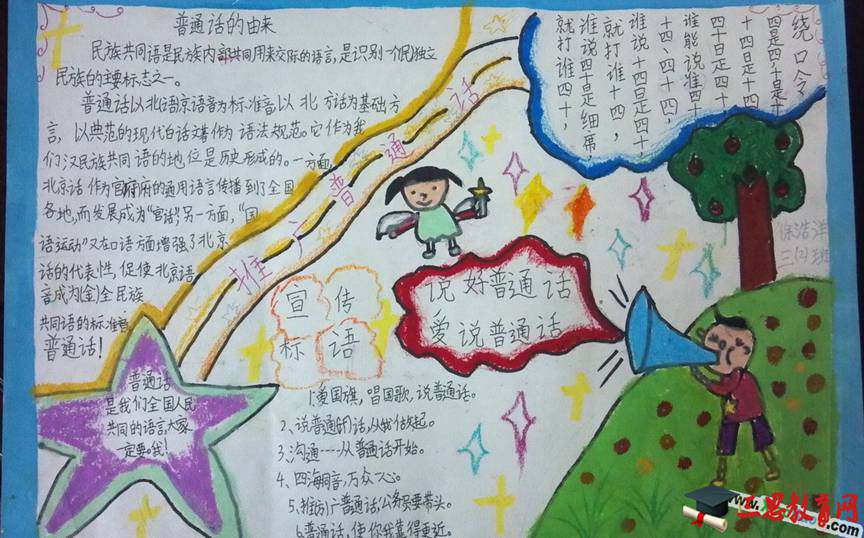 普通话的由来
民族共同语是民族内部共同用来交际的语言,是识别一个民独立
民族的主要标志之一。
普通话以北语京语音为标准音以北方话为基础方
言,以典范的现代白话文著作为语法规范。它作为我
们汉民族共同语的地位是历史形成的。一方面,
北京话作为官府的通用语言传播到了全国
各地,而发展成为"官话",另一方面,"国
语运动"又在口语方面增强了北京
话的代表性,促使北京语
音成为全民族
共同语的标准音
普通话!
推广普通话
绕口令
四是四,十是十
十四是十四
四十是四十
谁能说准四十
十四、四十四,
谁说十四是四十,
就打谁十四,
谁说四十是细席,
就打谁四十,
说好普通话
爱说普通话
徐浩洋
三(2)班
宣传
标语
1、爱国旗,唱国歌,说普通话。
2、说普通话,从我做起。
3、沟通——从普通话开始。
4、四海同音,万众一心。
5、推广普通话,公务员要带头。
6、普通话,使你我靠得更近。
普通话
是我们全国人民
共同的语言,大家
一定要。我!
三思教育网
www.